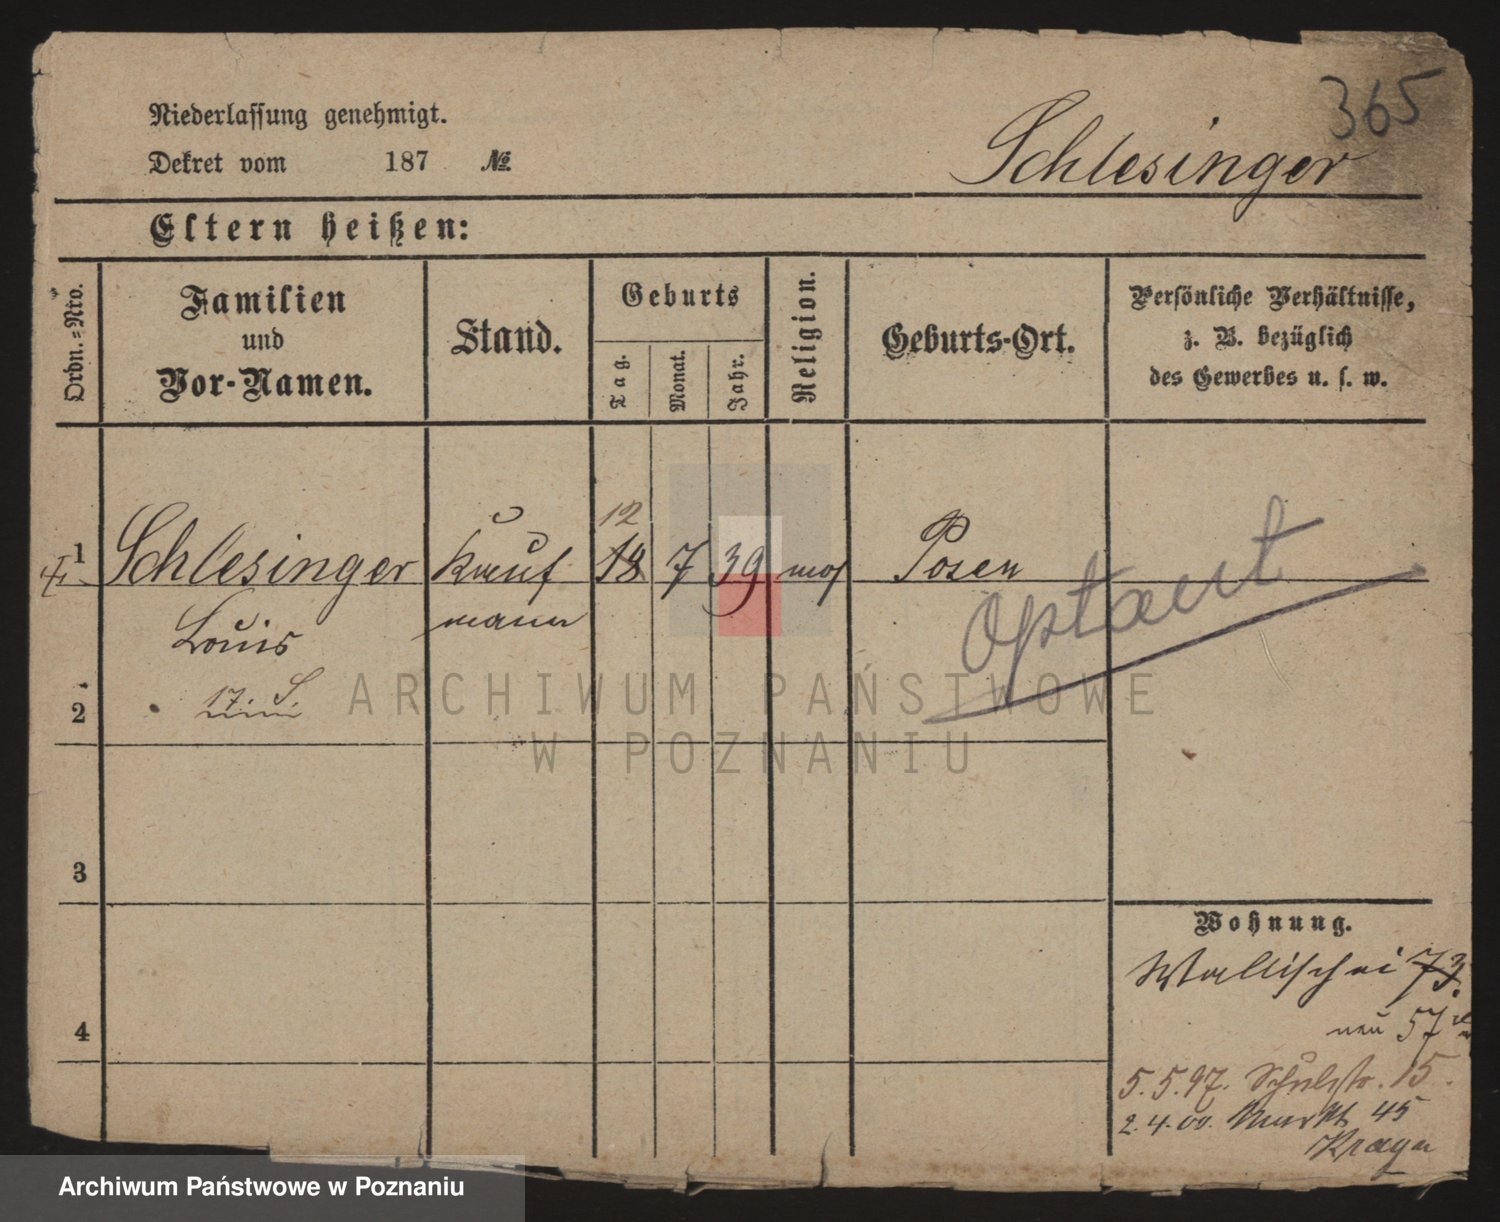 365
Niederlassung genehmigt.
Dekret vom 187 №
Schlesinger
Eltern heißen:
Ordn.=Nro.
Familien
und
Vor-Namen.
Stand.
Geburts
Tag.
Monat.
Jahr.
Religion.
Geburts-Ort.
Persönliche Verhältnisse,
z. B. bezüglich
des Gewerbes u. s. w.
12
1 Schlesinger Kauf 18 7 39 mos Posen
mann
Louis
optant
17. S.
2
ARCHIWUM PAŃSTWOWE
W POZNANIU
3
Wohnung.
Wallischei 73.
neu 57
4
5.5.97. Schulstr. 15.
2.4.00. Markt 45
Archiwum Państwowe w Poznaniu